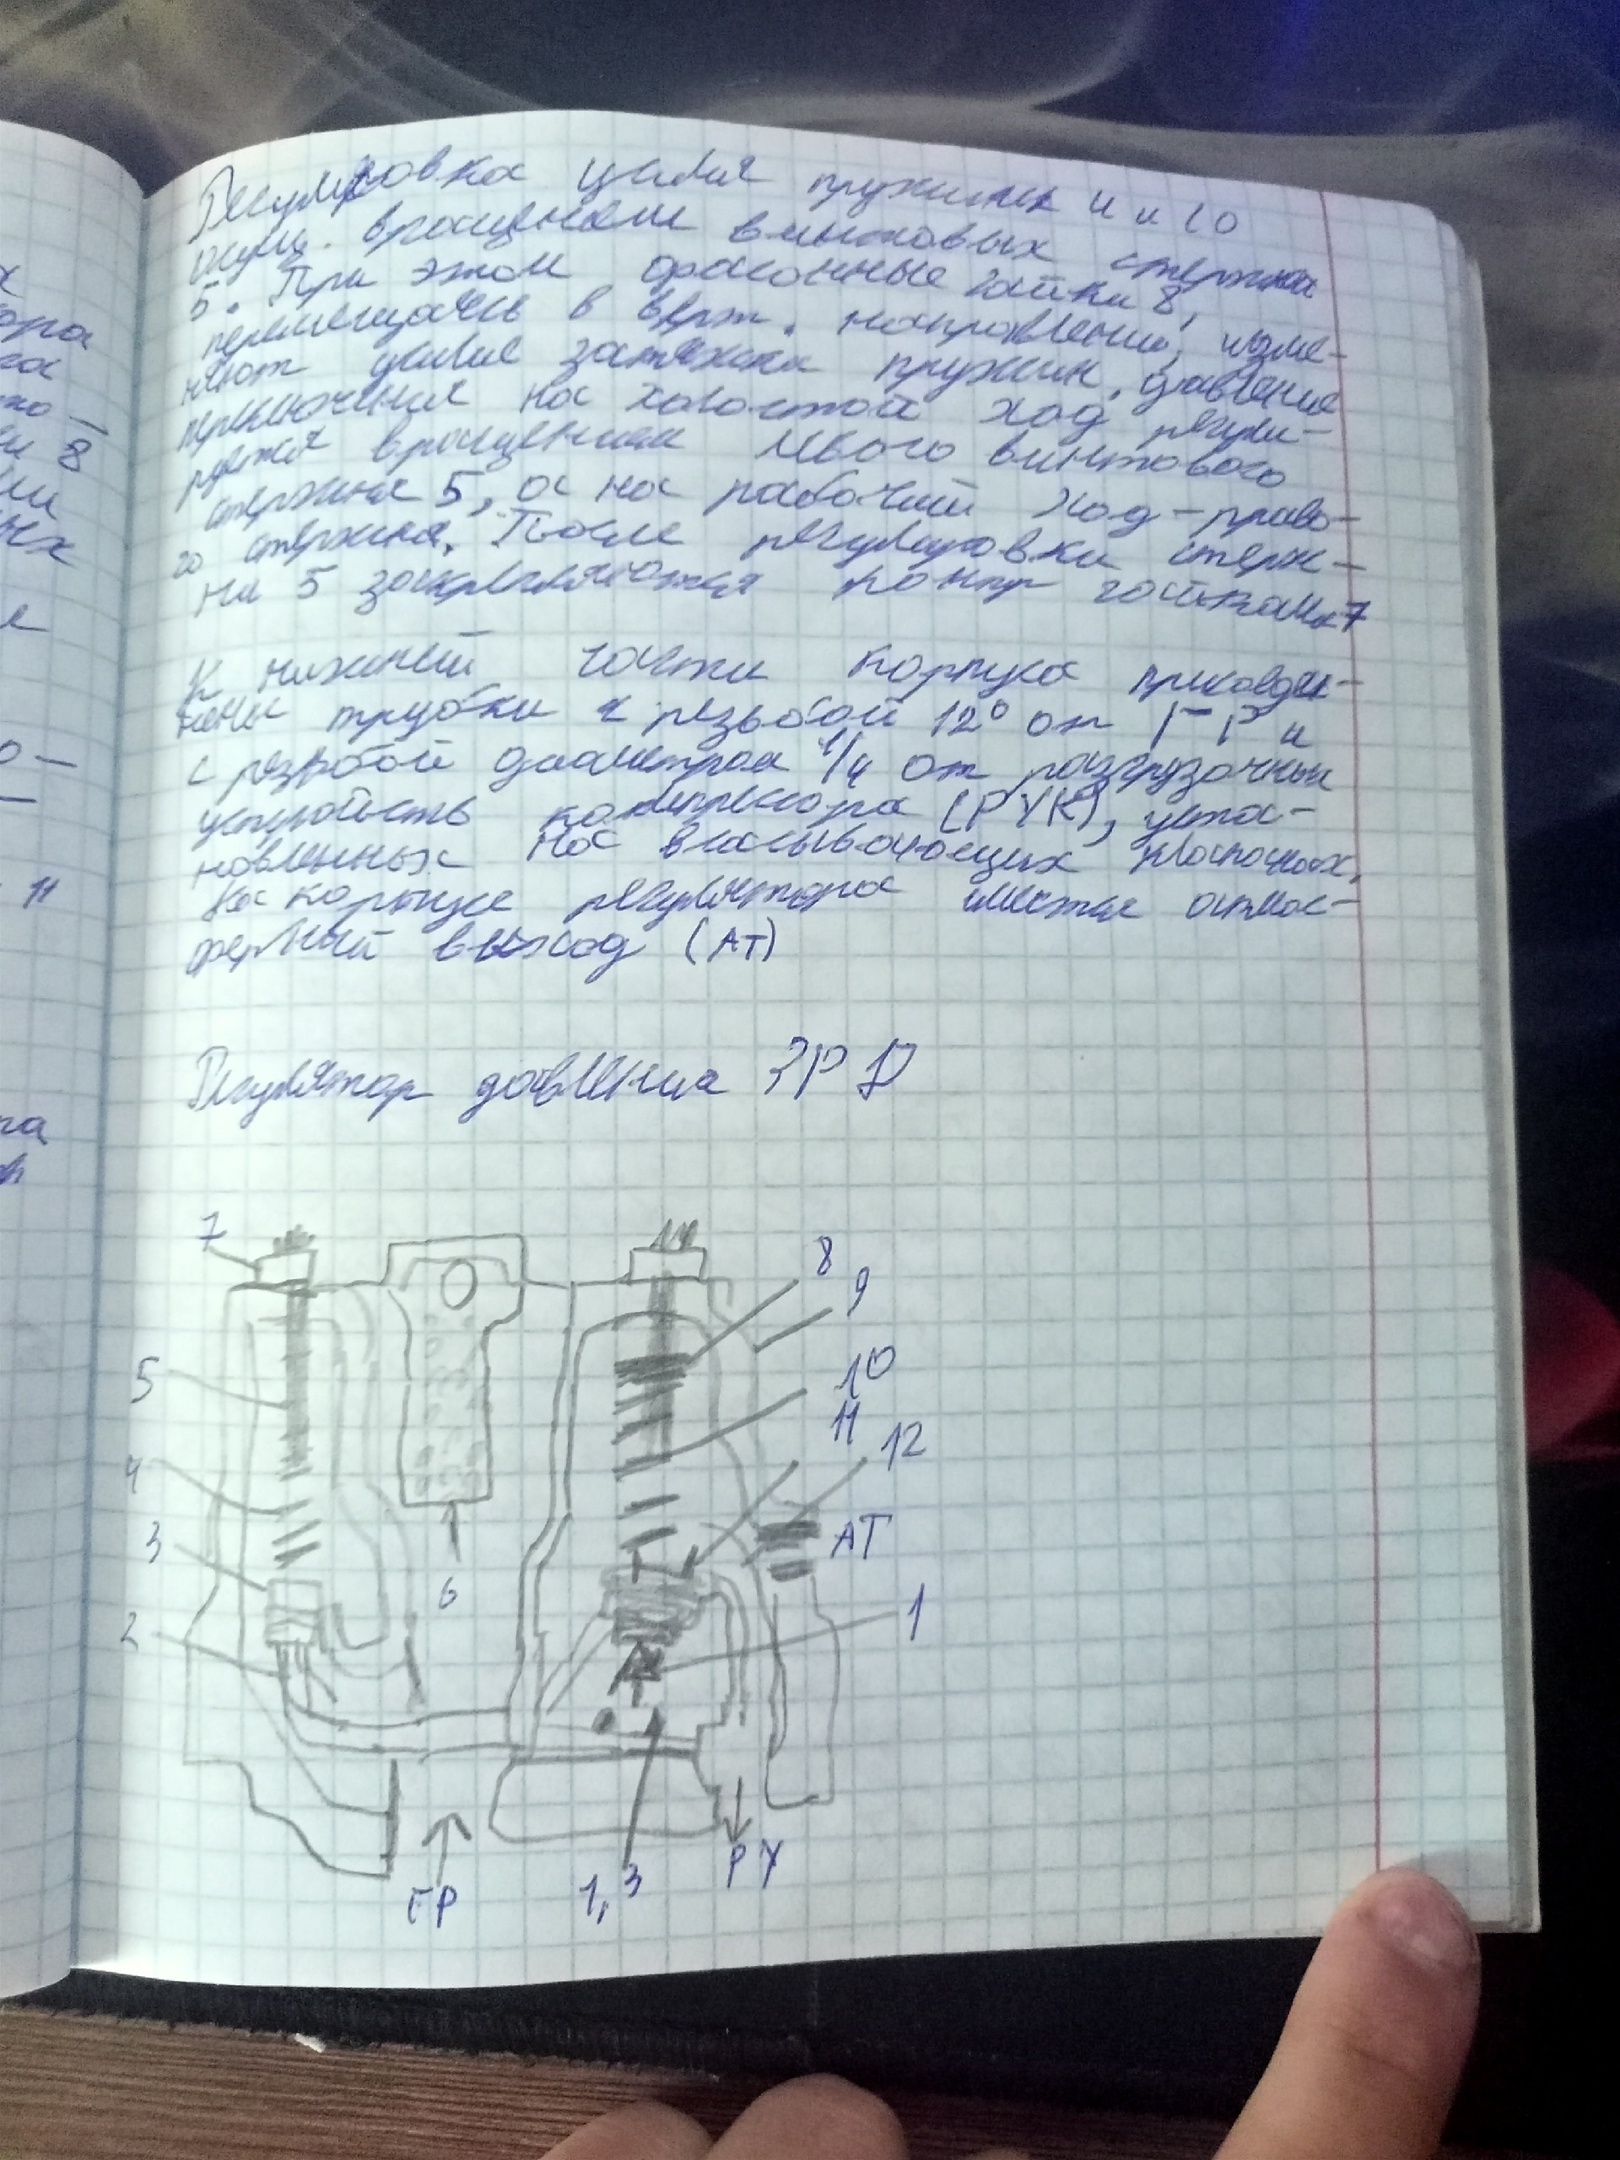 Регулировка усилия пружины 4 и 10
осущ. вращением винтовых стержней
5. При этом фасонные гайки 8,
перемещаясь в верт. направлении, изме-
няют усилие затяжки пружин, давление
переключения на холостой ход регули-
руется вращением левого винтового
стержня 5, а на рабочий ход - право-
го стержня. После регулировки стерж-
ни 5 закрепляются контр гайками 7
К нижней части корпуса присоеди-
нены трубки с резьбой 12° от ГР и
с резьбой диаметром 1/4 от разгрузочных
устройств компрессора (РУК), уста-
новленных на всасывающих клапанах.
На корпусе регулятора имеется атмос-
ферный выход (АТ)
Регулятор давления 3РД
7
8
9
5
10
11
4
12
3
АТ
6
2
1
ГР
1,3
РУ
х
ора
га
но-
8
ии
ых
е
о-
11